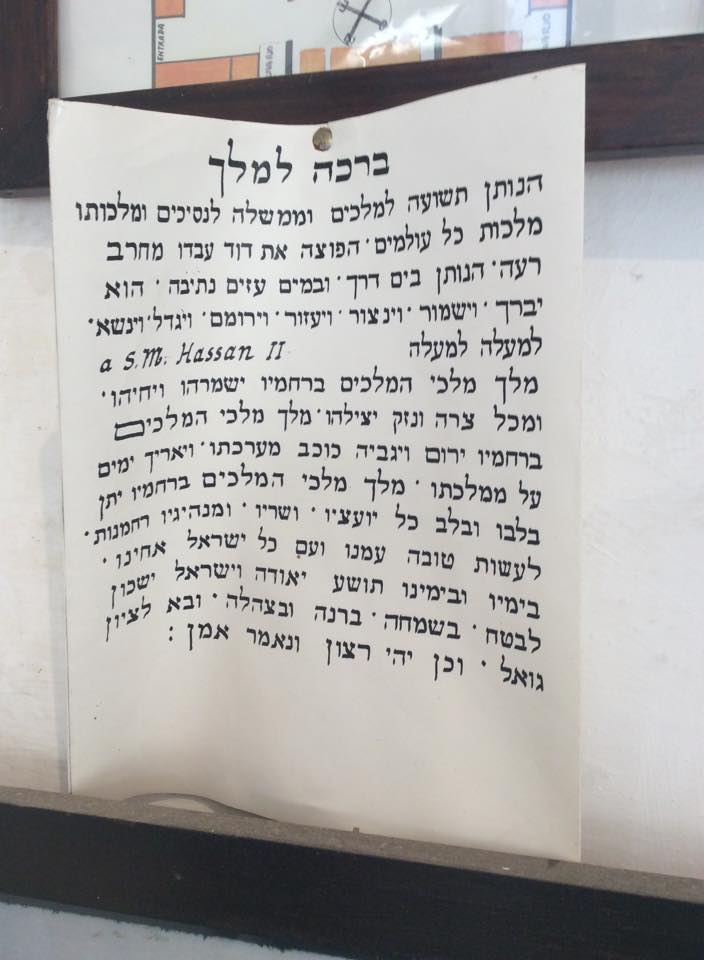 ENTRADA
ברכה למלך
הנותן תשועה למלכים וממשלה לנסיכים ומלכותו
מלכות כל עולמים · הפוצה את דוד עבדו מחרב
רעה · הנותן בים דרך · ובמים עזים נתיבה · הוא
יברך · וישמור · וינצור · ויעזור · וירומם · ויגדל · וינשא ·
למעלה למעלה a S.M. Hassan II
מלך מלכי המלכים ברחמיו ישמרהו ויחיהו ·
ומכל צרה ונזק יצילהו · מלך מלכי המלכים
ברחמיו ירום ויגביה כוכב מערכתו · ויאריך ימים
על ממלכתו · מלך מלכי המלכים ברחמיו יתן
בלבו ובלב כל יועציו · ושריו · ומנהיגיו רחמנות ·
לעשות טובה עמנו ועם כל ישראל אחינו ·
בימיו ובימינו תושע יאודה וישראל ישכון
לבטח · בשמחה · ברנה ובצהלה · ובא לציון
גואל · וכן יהי רצון ונאמר אמן :